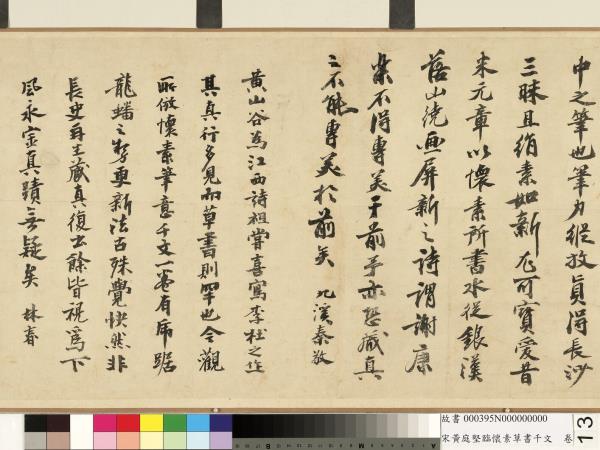 中之筆也筆力縱放真得長沙
三昧且絹素如新尤可寶愛昔
米元章以懷素所書水從銀漢
落山繞畫屏新之詩謂謝康
樂不得專美于前予亦恐藏真
之不能專美於前矣 北溪秦敬
黃山谷為江西詩祖嘗喜寫李杜之作
其真行多見而草書則罕也今觀
所倣懷素筆意千文一卷有虎踞
龍蟠之勢更新法古殊覺快然非
長史再生藏真復出餘皆視為下
風永定真蹟無疑矣 林春
故書 000395N000000000
宋黃庭堅臨懷素草書千文 卷
13
B
A